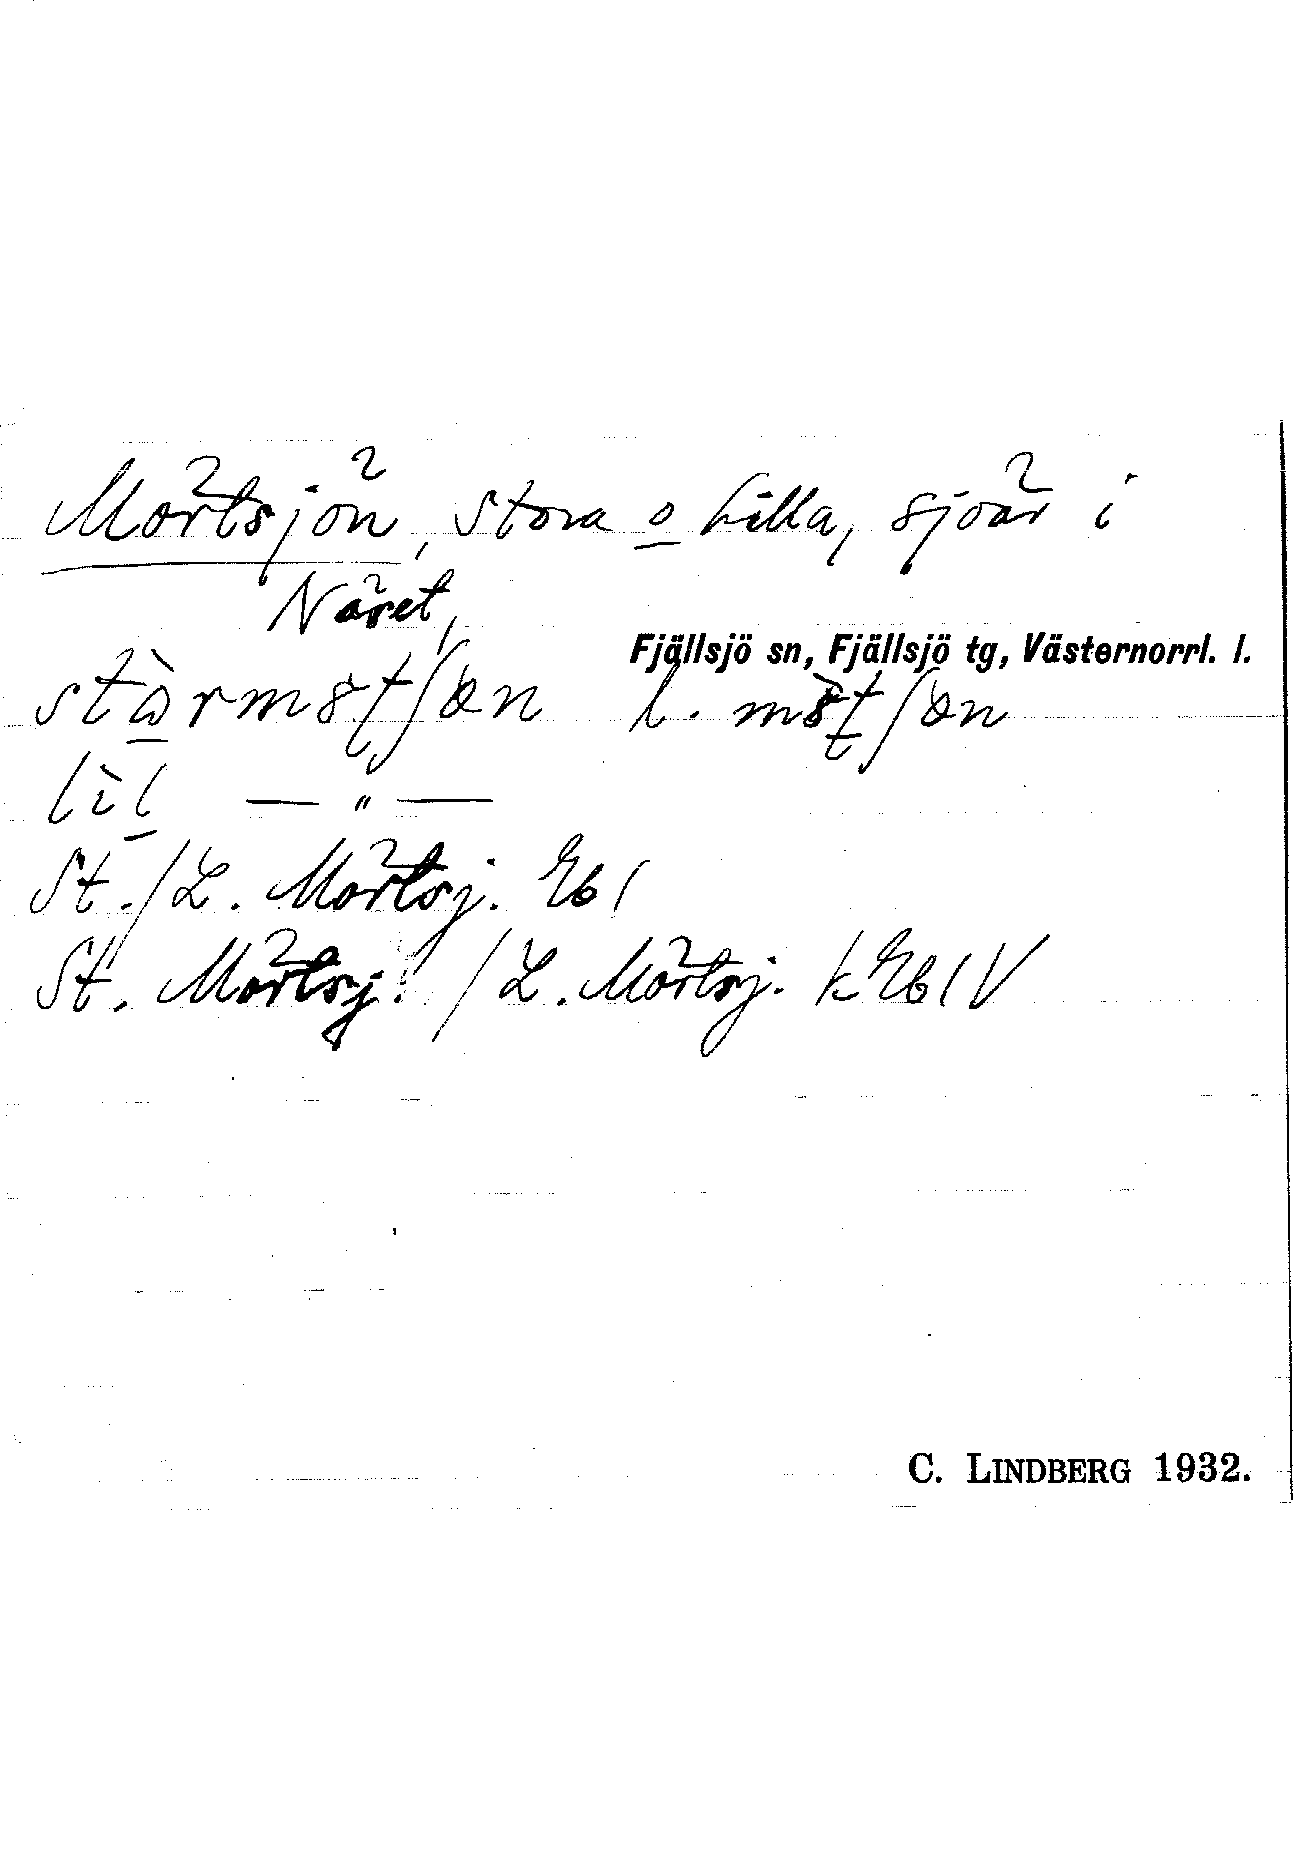 Mörtsjön, Stora o Lilla, sjöar i
Näret,
Fjällsjö sn, Fjällsjö tg, Västernorrl. l.
l.
lìl — " —
St./L. Mörtsj. Eb I
St. Mörtsj. / L. Mörtsj. k Eb IV
C. LINDBERG 1932.